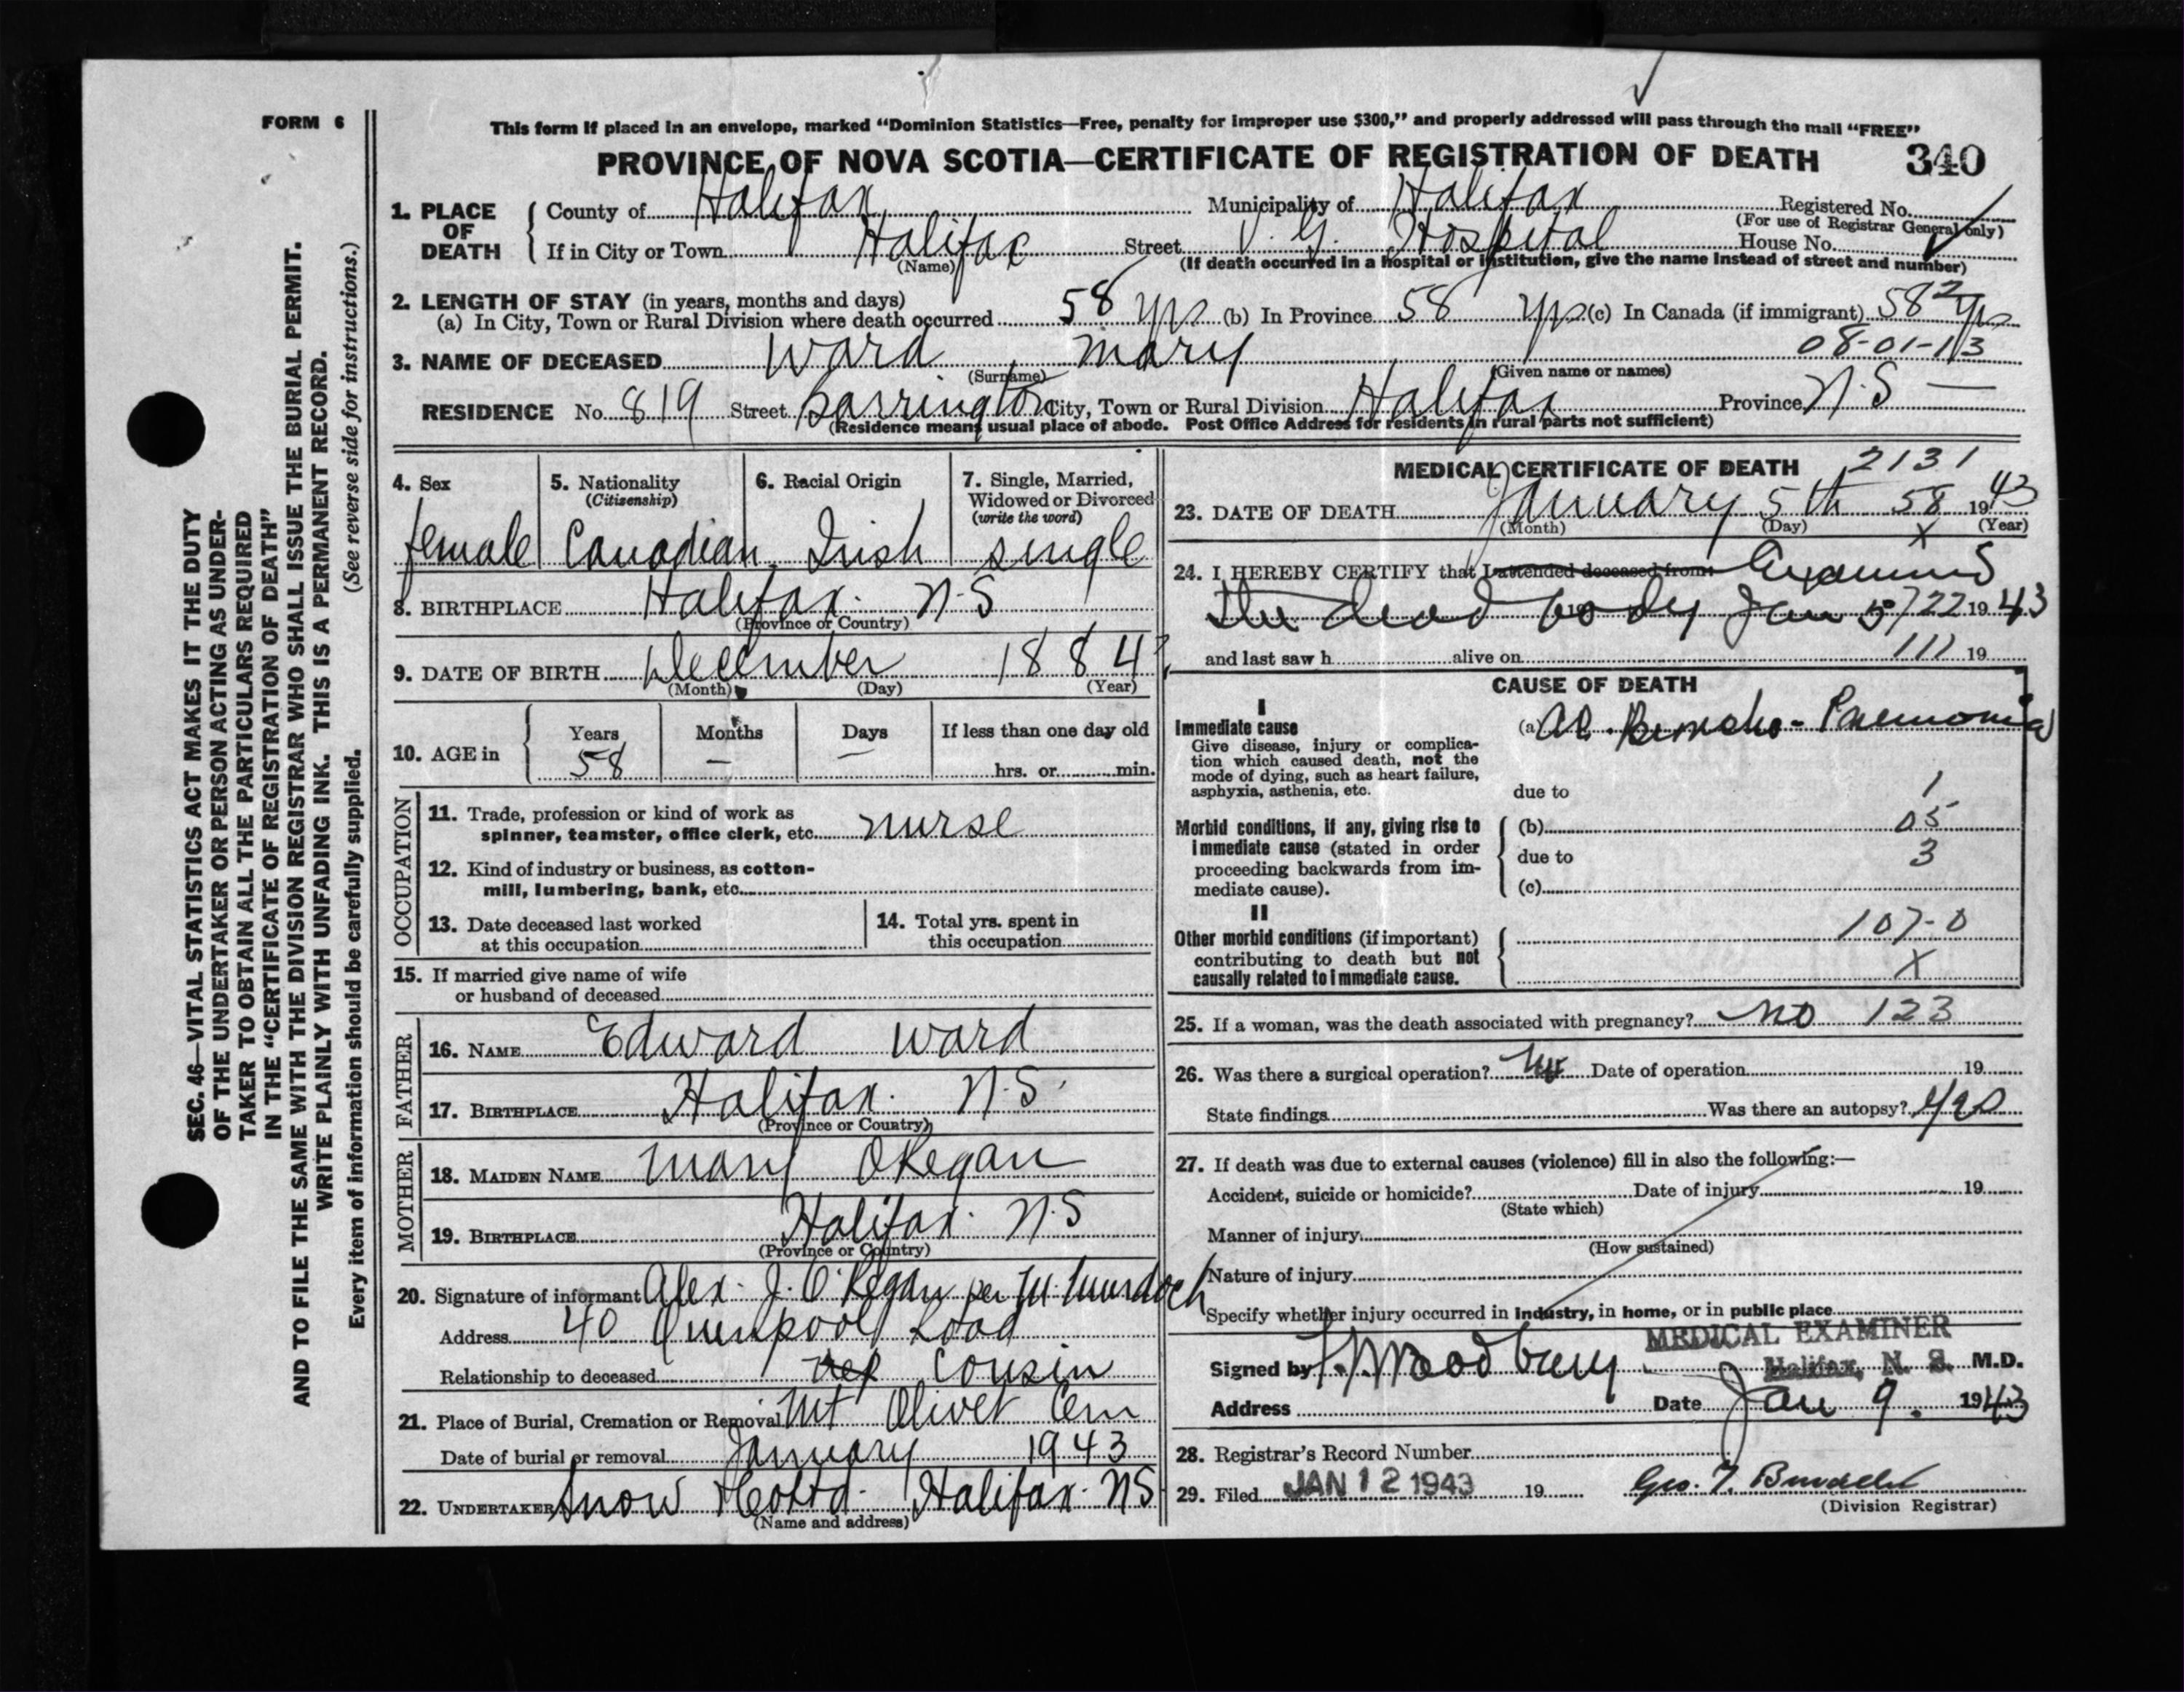 FORM 6
This form if placed in an envelope, marked “Dominion Statistics—Free, penalty for improper use $300,” and properly addressed will pass through the mail “FREE”
PROVINCE OF NOVA SCOTIA—CERTIFICATE OF REGISTRATION OF DEATH 340
1. PLACE OF DEATH County of Halifax Municipality of Halifax Registered No.
(For use of Registrar General only)
If in City or Town Halifax Street V. G. Hospital House No.
(Name) (If death occurred in a hospital or institution, give the name instead of street and number)
2. LENGTH OF STAY (in years, months and days)
(a) In City, Town or Rural Division where death occurred 58 yrs (b) In Province 58 yrs (c) In Canada (if immigrant) 58 yrs
2
08-01-13
3. NAME OF DECEASED Ward Mary
(Surname) (Given name or names)
RESIDENCE No. 819 Street Barrington City, Town or Rural Division Halifax Province N.S —
(Residence means usual place of abode. Post Office Address for residents in rural parts not sufficient)
4. Sex 5. Nationality 6. Racial Origin 7. Single, Married,
(Citizenship) Widowed or Divorced
(write the word)
female Canadian Irish single
8. BIRTHPLACE Halifax. N-S
(Province or Country)
9. DATE OF BIRTH December 1884?
(Month) (Day) (Year)
10. AGE in Years Months Days If less than one day old
58 — — hrs. or min.
OCCUPATION
11. Trade, profession or kind of work as
spinner, teamster, office clerk, etc. nurse
12. Kind of industry or business, as cotton-
mill, lumbering, bank, etc.
13. Date deceased last worked
at this occupation
14. Total yrs. spent in
this occupation
15. If married give name of wife
or husband of deceased
FATHER
16. NAME Edward Ward
17. BIRTHPLACE Halifax. N.S.
(Province or Country)
MOTHER
18. MAIDEN NAME Mary O'Regan
19. BIRTHPLACE Halifax. N.S
(Province or Country)
20. Signature of informant Alex. J. O'Regan per M. Murdoch
Address 40 Quinpool Road
Relationship to deceased Cousin
21. Place of Burial, Cremation or Removal Mt Olivet Cem
Date of burial or removal January 1943
22. UNDERTAKER Snow & Co Ltd. Halifax. NS
(Name and address)
MEDICAL CERTIFICATE OF DEATH 2131
23. DATE OF DEATH January 5th 58 1943
(Month) (Day) X (Year)
24. I HEREBY CERTIFY that I attended deceased from: Examined
the dead body Jan 5 722 1943
and last saw h alive on 111 19
CAUSE OF DEATH
I
Immediate cause
Give disease, injury or complica-
tion which caused death, not the
mode of dying, such as heart failure,
asphyxia, asthenia, etc.
(a) Ac. Broncho-Pneumonia
due to 1
Morbid conditions, if any, giving rise to
immediate cause (stated in order
proceeding backwards from im-
mediate cause).
(b) 05
due to 3
(c)
II
Other morbid conditions (if important)
contributing to death but not
causally related to immediate cause.
107-0
X
25. If a woman, was the death associated with pregnancy? No 123
26. Was there a surgical operation? No Date of operation 19
State findings Was there an autopsy? Yes
27. If death was due to external causes (violence) fill in also the following:—
Accident, suicide or homicide? Date of injury 19
(State which)
Manner of injury
(How sustained)
Nature of injury
Specify whether injury occurred in industry, in home, or in public place
MEDICAL EXAMINER
Halifax, N. S.
Signed by Woodbury M.D.
Address Date Jan 9. 1943
28. Registrar's Record Number
29. Filed JAN 12 1943 19 Geo. T.
(Division Registrar)
SEC. 46—VITAL STATISTICS ACT MAKES IT THE DUTY
OF THE UNDERTAKER OR PERSON ACTING AS UNDER-
TAKER TO OBTAIN ALL THE PARTICULARS REQUIRED
IN THE “CERTIFICATE OF REGISTRATION OF DEATH”
AND TO FILE THE SAME WITH THE DIVISION REGISTRAR WHO SHALL ISSUE THE BURIAL PERMIT.
WRITE PLAINLY WITH UNFADING INK. THIS IS A PERMANENT RECORD.
(See reverse side for instructions.)
Every item of information should be carefully supplied.